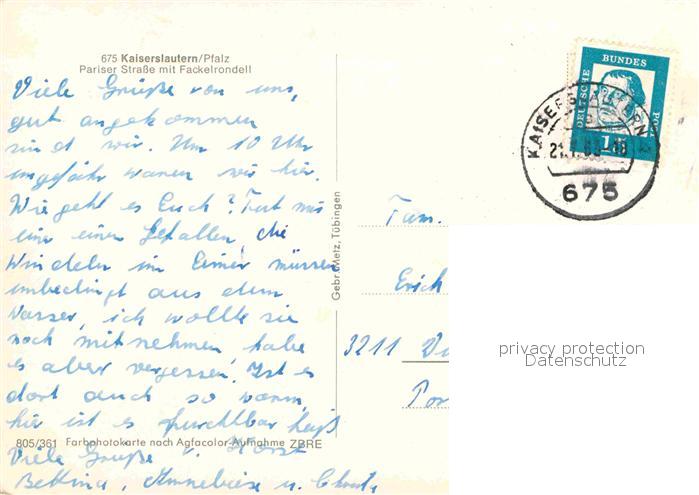 675 Kaiserslautern/Pfalz
Pariser Straße mit Fackelrondell
Viele Grüße von uns,
gut angekommen
sind wir. Um 10 Uhr
ungefähr waren wir hier.
Wie geht es Euch? Tut mir
einen Gefallen, die
Windeln im Eimer müssen
unbedingt aus dem
Wasser, ich wollte sie
noch mitnehmen habe
es aber vergessen. Ist es
dort auch so warm,
hier ist es furchtbar heiß
Viele Grüße v. Horst
Bettina, Anneliese u.
805/361 Farbphotokarte nach Agfacolor-Aufnahme ZBRE
Gebr. Metz, Tübingen
DEUTSCHE
BUNDES
POST
15
KAISERSLAUTERN
21.
675
Fam.
Erich
3211
privacy protection
Datenschutz